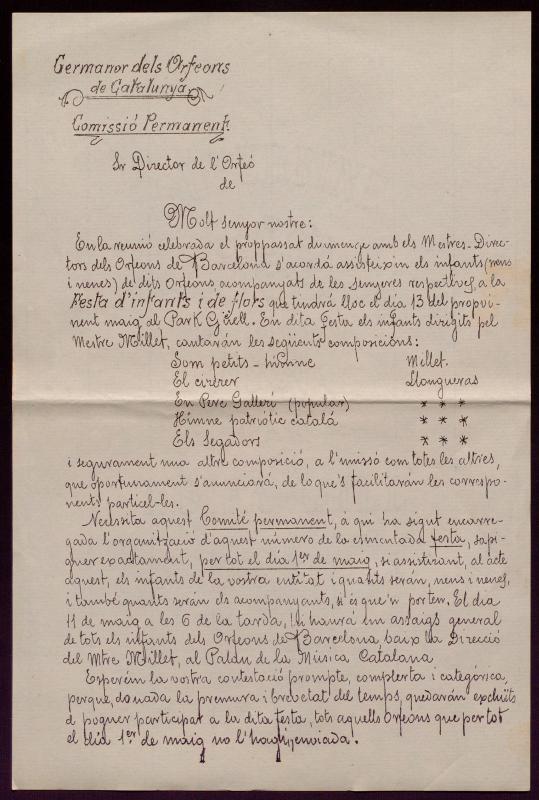 Germanor dels Orfeons
de Catalunya
Comissió Permanent.
Sr Director de l'Orfeó
de
Molt senyor nostre:
En la reunió celebrada el proppassat diumenge amb els Mestres-Direc-
tors dels Orfeons de Barcelona s'acordá assisteixin els infants (nens
i nenes) de dits Orfeons acompanyats de les senyeres respectives a la
Festa d'infants i de flors que tindrá lloc el dia 13 del propvi-
nent maig al Park Güell. En dita festa els infants dirigits pel
Mestre Millet, cantarán les següents composicions:
Som petits - himne Millet.
El cirerer Llongueras
En Pere Gallerí (popular) * * *
Himne patriótic catalá * * *
Els Segadors * * *
i segurament una altre composició, a l'unissó com totes les altres,
que oportunament s'anunciará, de lo que's facilitarán les correspo-
nents particel-les.
Necessita aquest Comité permanent, á qui ha sigut encarre-
gada l'organització d'aquest número de la esmentada festa, sapi-
guer exactament, per tot el dia 1er de maig, si assistirant, al acte
aquest, els infants de la vostra entitat i quants serán, nens i nenes,
i també quants serán els acompanyants, si és que'n porten. El dia
11 de maig a les 6 de la tarda, hi haurá un assaigs general
de tots els infants dels Orfeons de Barcelona baix la Direcció
del Mtre Millet, al Palau de la Música Catalana.
Esperém la vostra contestació prompte, complerta i categórica,
perque, donada la premura i brevetat del temps, quedarán exclüits
d poguer participar a la dita festa, tots aquells Orfeons que per tot
el dia 1er de maig no l'hagin enviada.